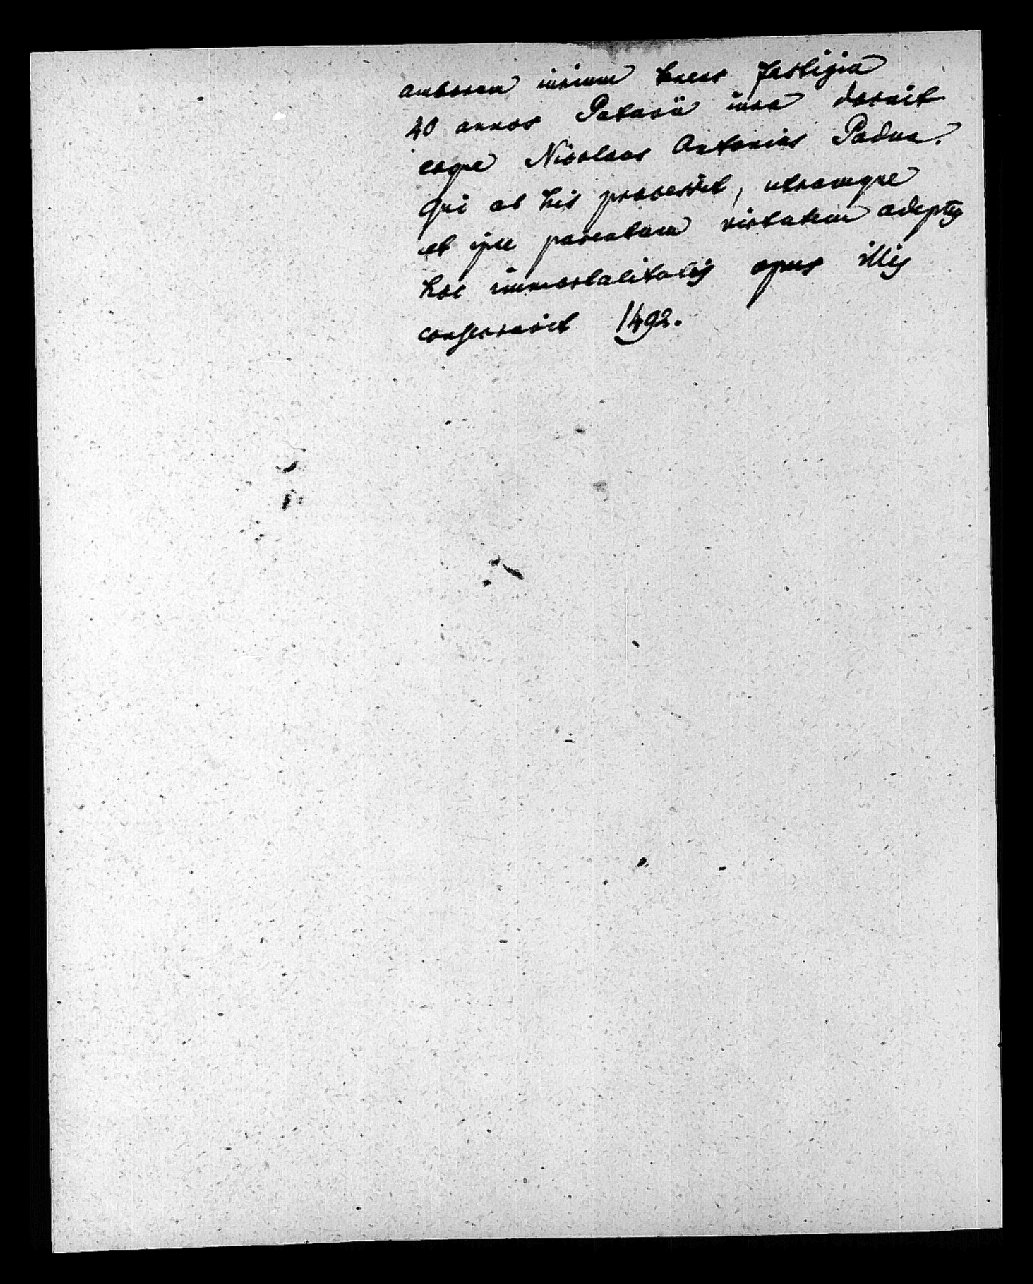 amborum iurium tacas fastigia
40 annos Patavii iura docuit
eoque Nicolaus Antonius Padua.
Qui ab his processit, utramque
et ipse parentum virtutem adeptus
hoc immortalitatis opus illis
consecravit 1492.